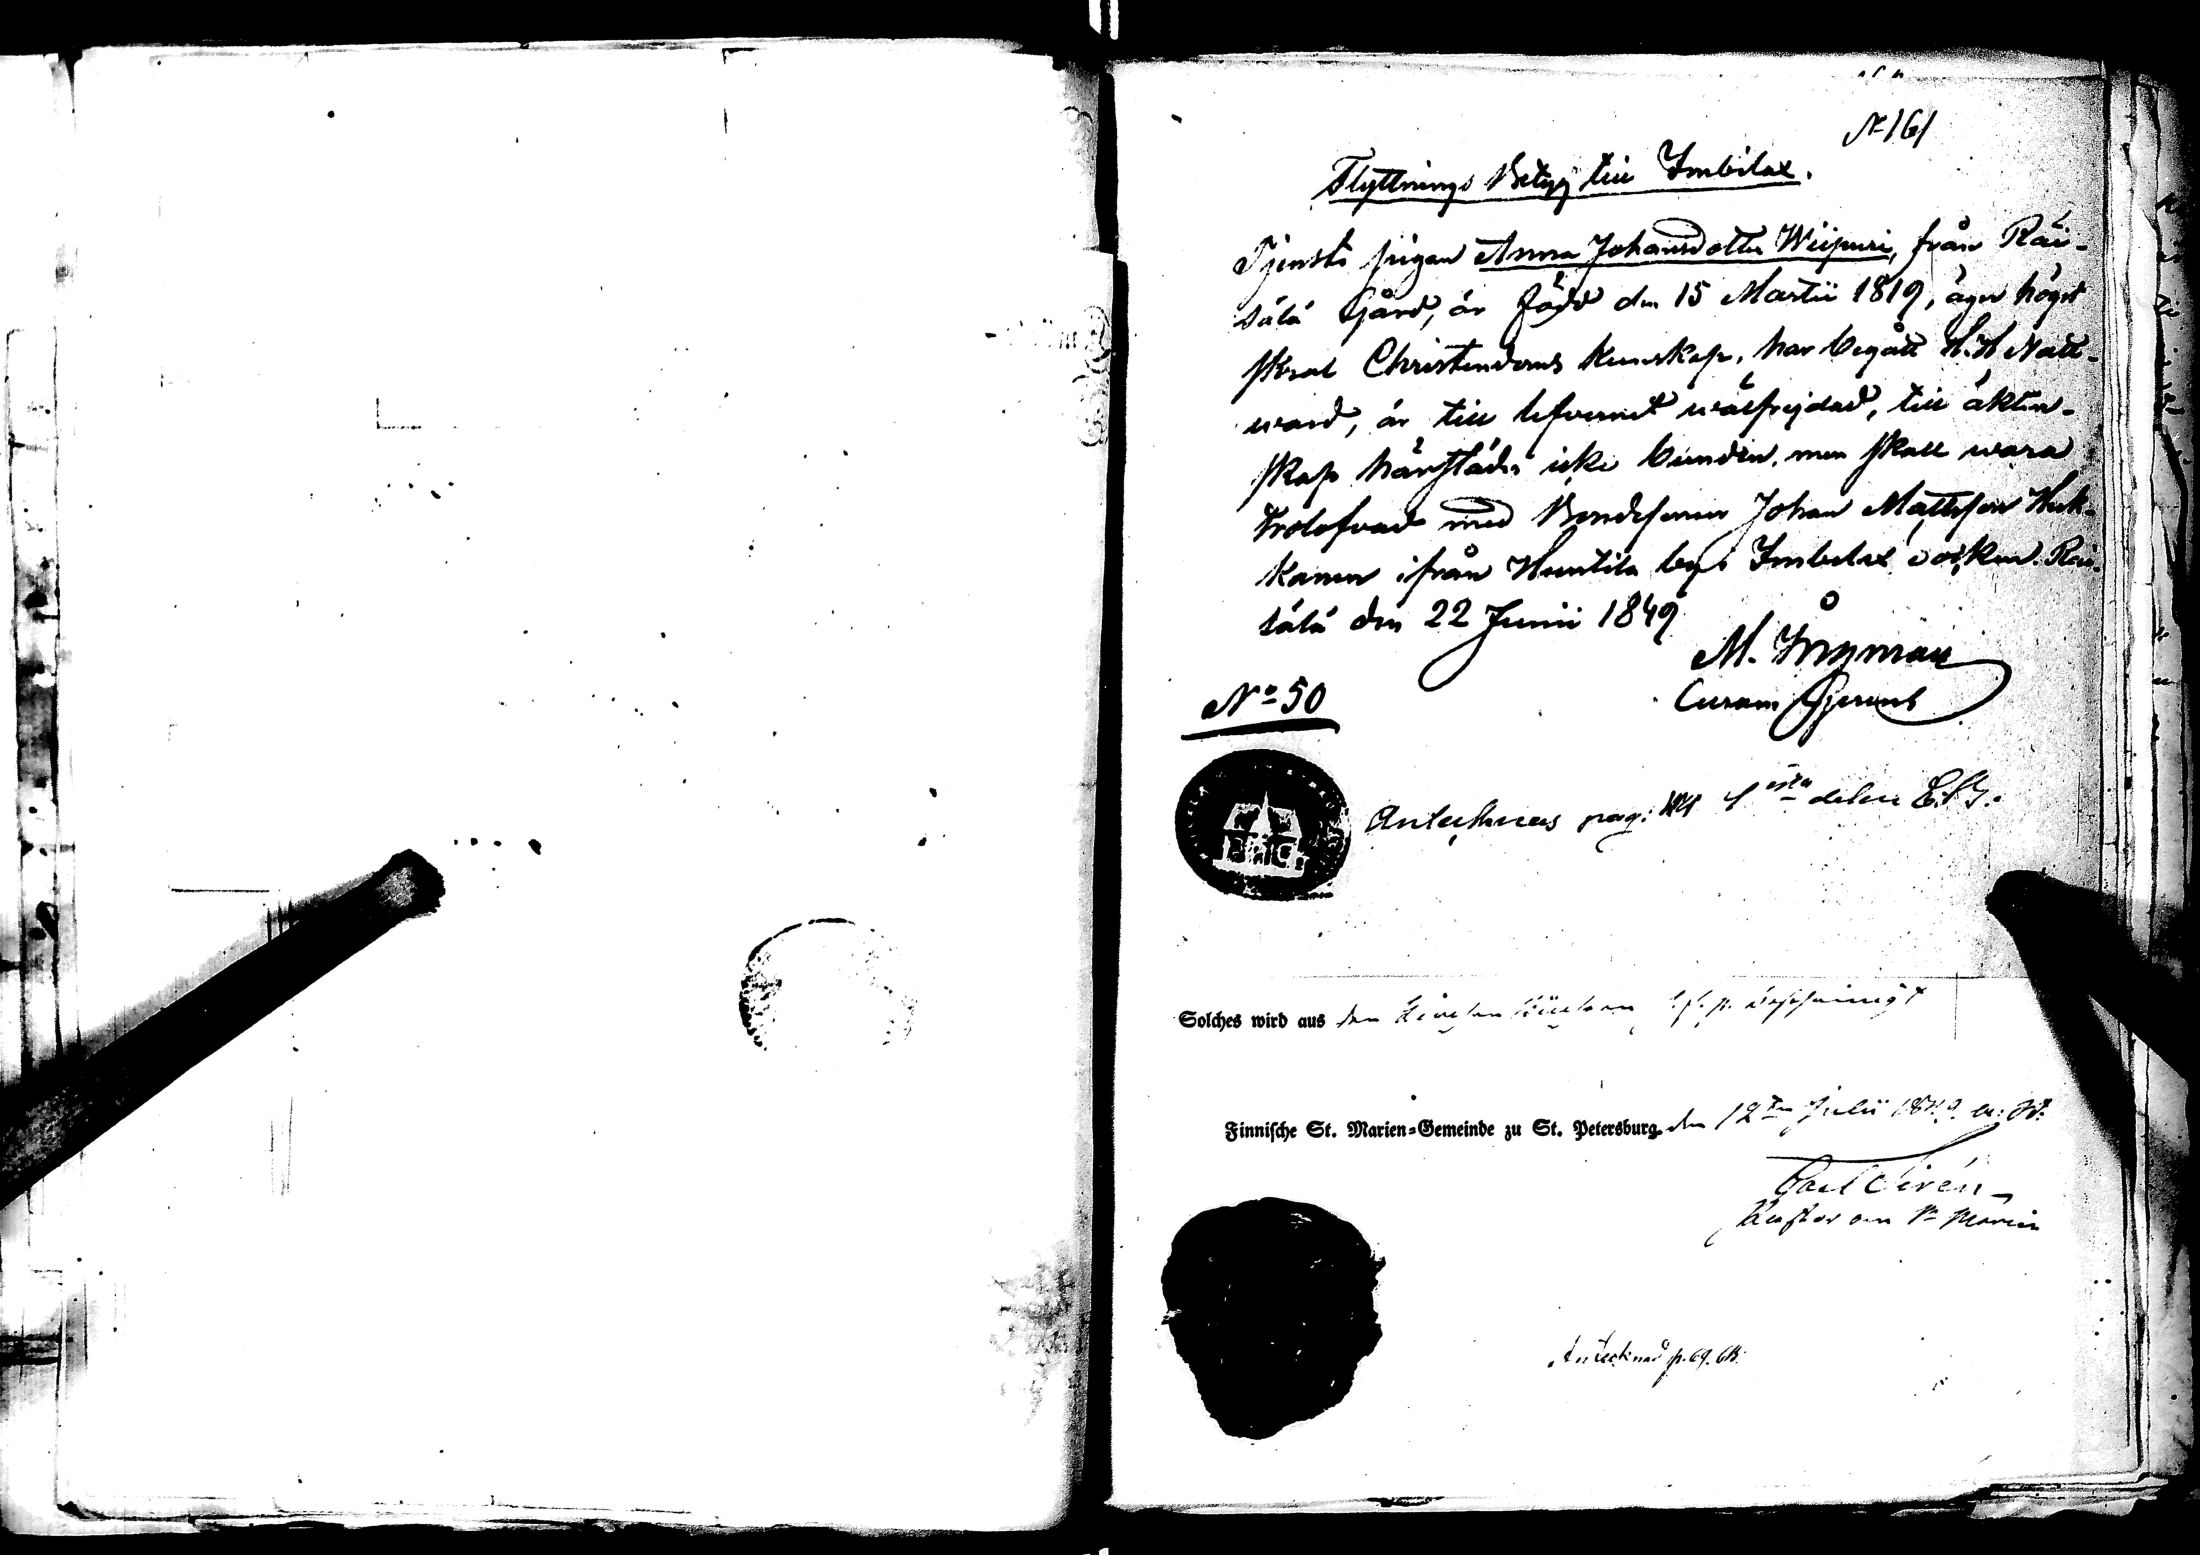 N 161
Flyttnings Betyg till Imbilax.
Tjensts pigan Anna Johansdotter Wiipuri, från Räi-
sälä Gård, är född den 15 Martii 1819, äger högst
skral Christendoms kunskap, har begått H.H Natt-
ward, är till lefvernet wälfrejdad, till äkten-
skap härstädes icke bunden, men skall wara
trolofvad med Bondesonen Johan Mattsson Huk-
kanen ifrån Huntila by i Imbilax socken. Räi-
sälä den 22 Junii 1849
M. Ingman
Curam Gerens
No 50
Antecknas pag: 1sta delen
Solches wird aus den Kirchenbüchern bescheinigt
Finnische St. Marien-Gemeinde zu St. Petersburg den 12ten Julii 1849
Carl Sirén
Küster an St Marien
Antecknad p. 69.